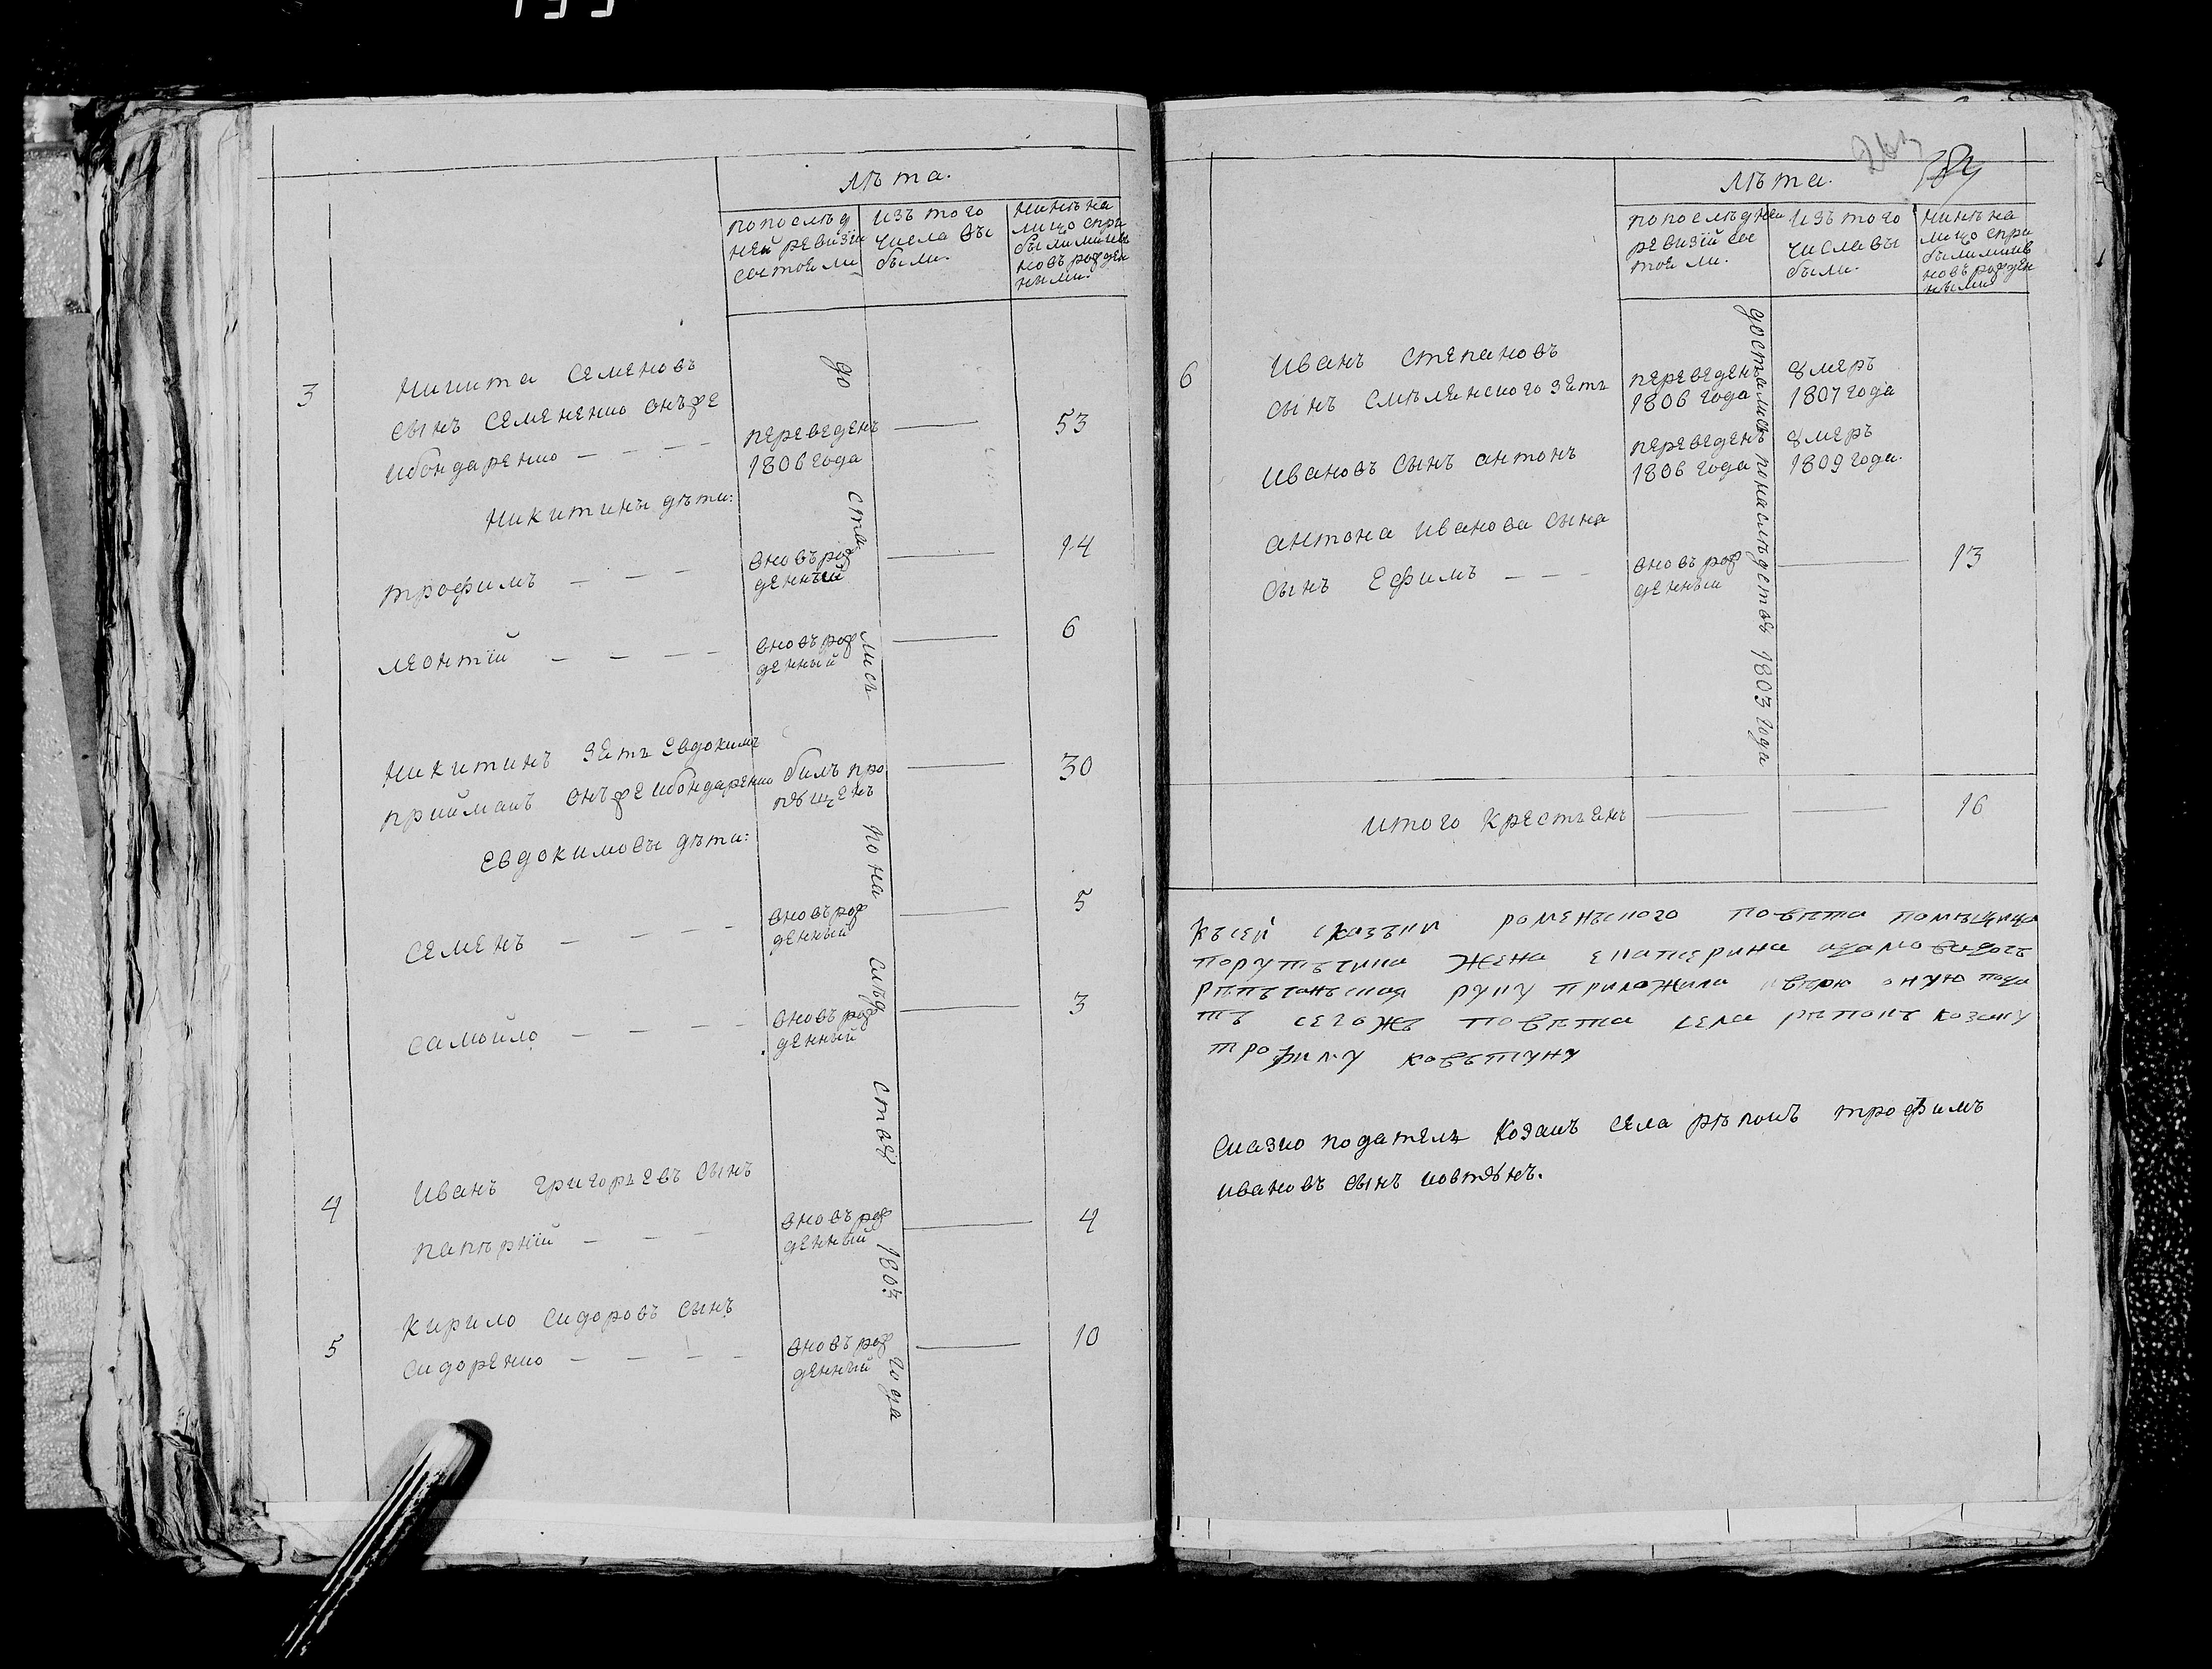 лѣта.
попослѣд
ней ревизїи
состояли
изъ того
числа вы
были.
нинѣ на
лицо спри
былимии
новъ рожден
ными.
3
Никита Семеновъ
сынъ Семененко онъже
ибондаренко — — —
переведенъ
1806 года
53
Никитины дѣти:
трофимъ — — —
вновъ рож
денный
14
леонтїй — — — —
вновъ рож
денный
6
Никитинъ зять Евдокимъ
приймакъ онъже ибондаренко
билъ про
пущенъ
30
Евдокимовы дѣти:
семенъ — — — —
вновъ рож
денный
5
самойло — — — —
вновъ рож
денный
3
4
Иванъ григорьевъ сынъ
— — —
вновъ рож
денный
4
5
Кирило Сидоровъ сынъ
сидоренко — — — —
вновъ рож
денный
10
до стались по на слѣд ствȣ 1803 года
лѣта.
попослѣдней
ревизїй сос
тояли.
изъ того
числа вы
были.
нинѣ на
лицо спри
былимии
новъ рожден
ными
6
Иванъ степановъ
сынъ смѣлянского зять
переведенъ
1806 года
ȣмеръ
1807 года
Ивановъ сынъ антонъ
переведенъ
1806 года
ȣмеръ
1809 года.
антона иванова сына
сынъ Ефимъ — — —
вновъ рож
денный
13
достались по наслѣдствȣ 1803 года
итого крестьянъ
16
Късей сказъки роменъского повѣта помѣщица
порутъчика жена екатерина
рѣпъчанъская руку приложила вѣрю оную пода
тъ сегожъ повѣта села рѣпокъ козаку
трофиму ковътуну
Сказко податель Козакъ села рѣпокъ трофимъ
ивановъ сынъ ковтȣнъ.